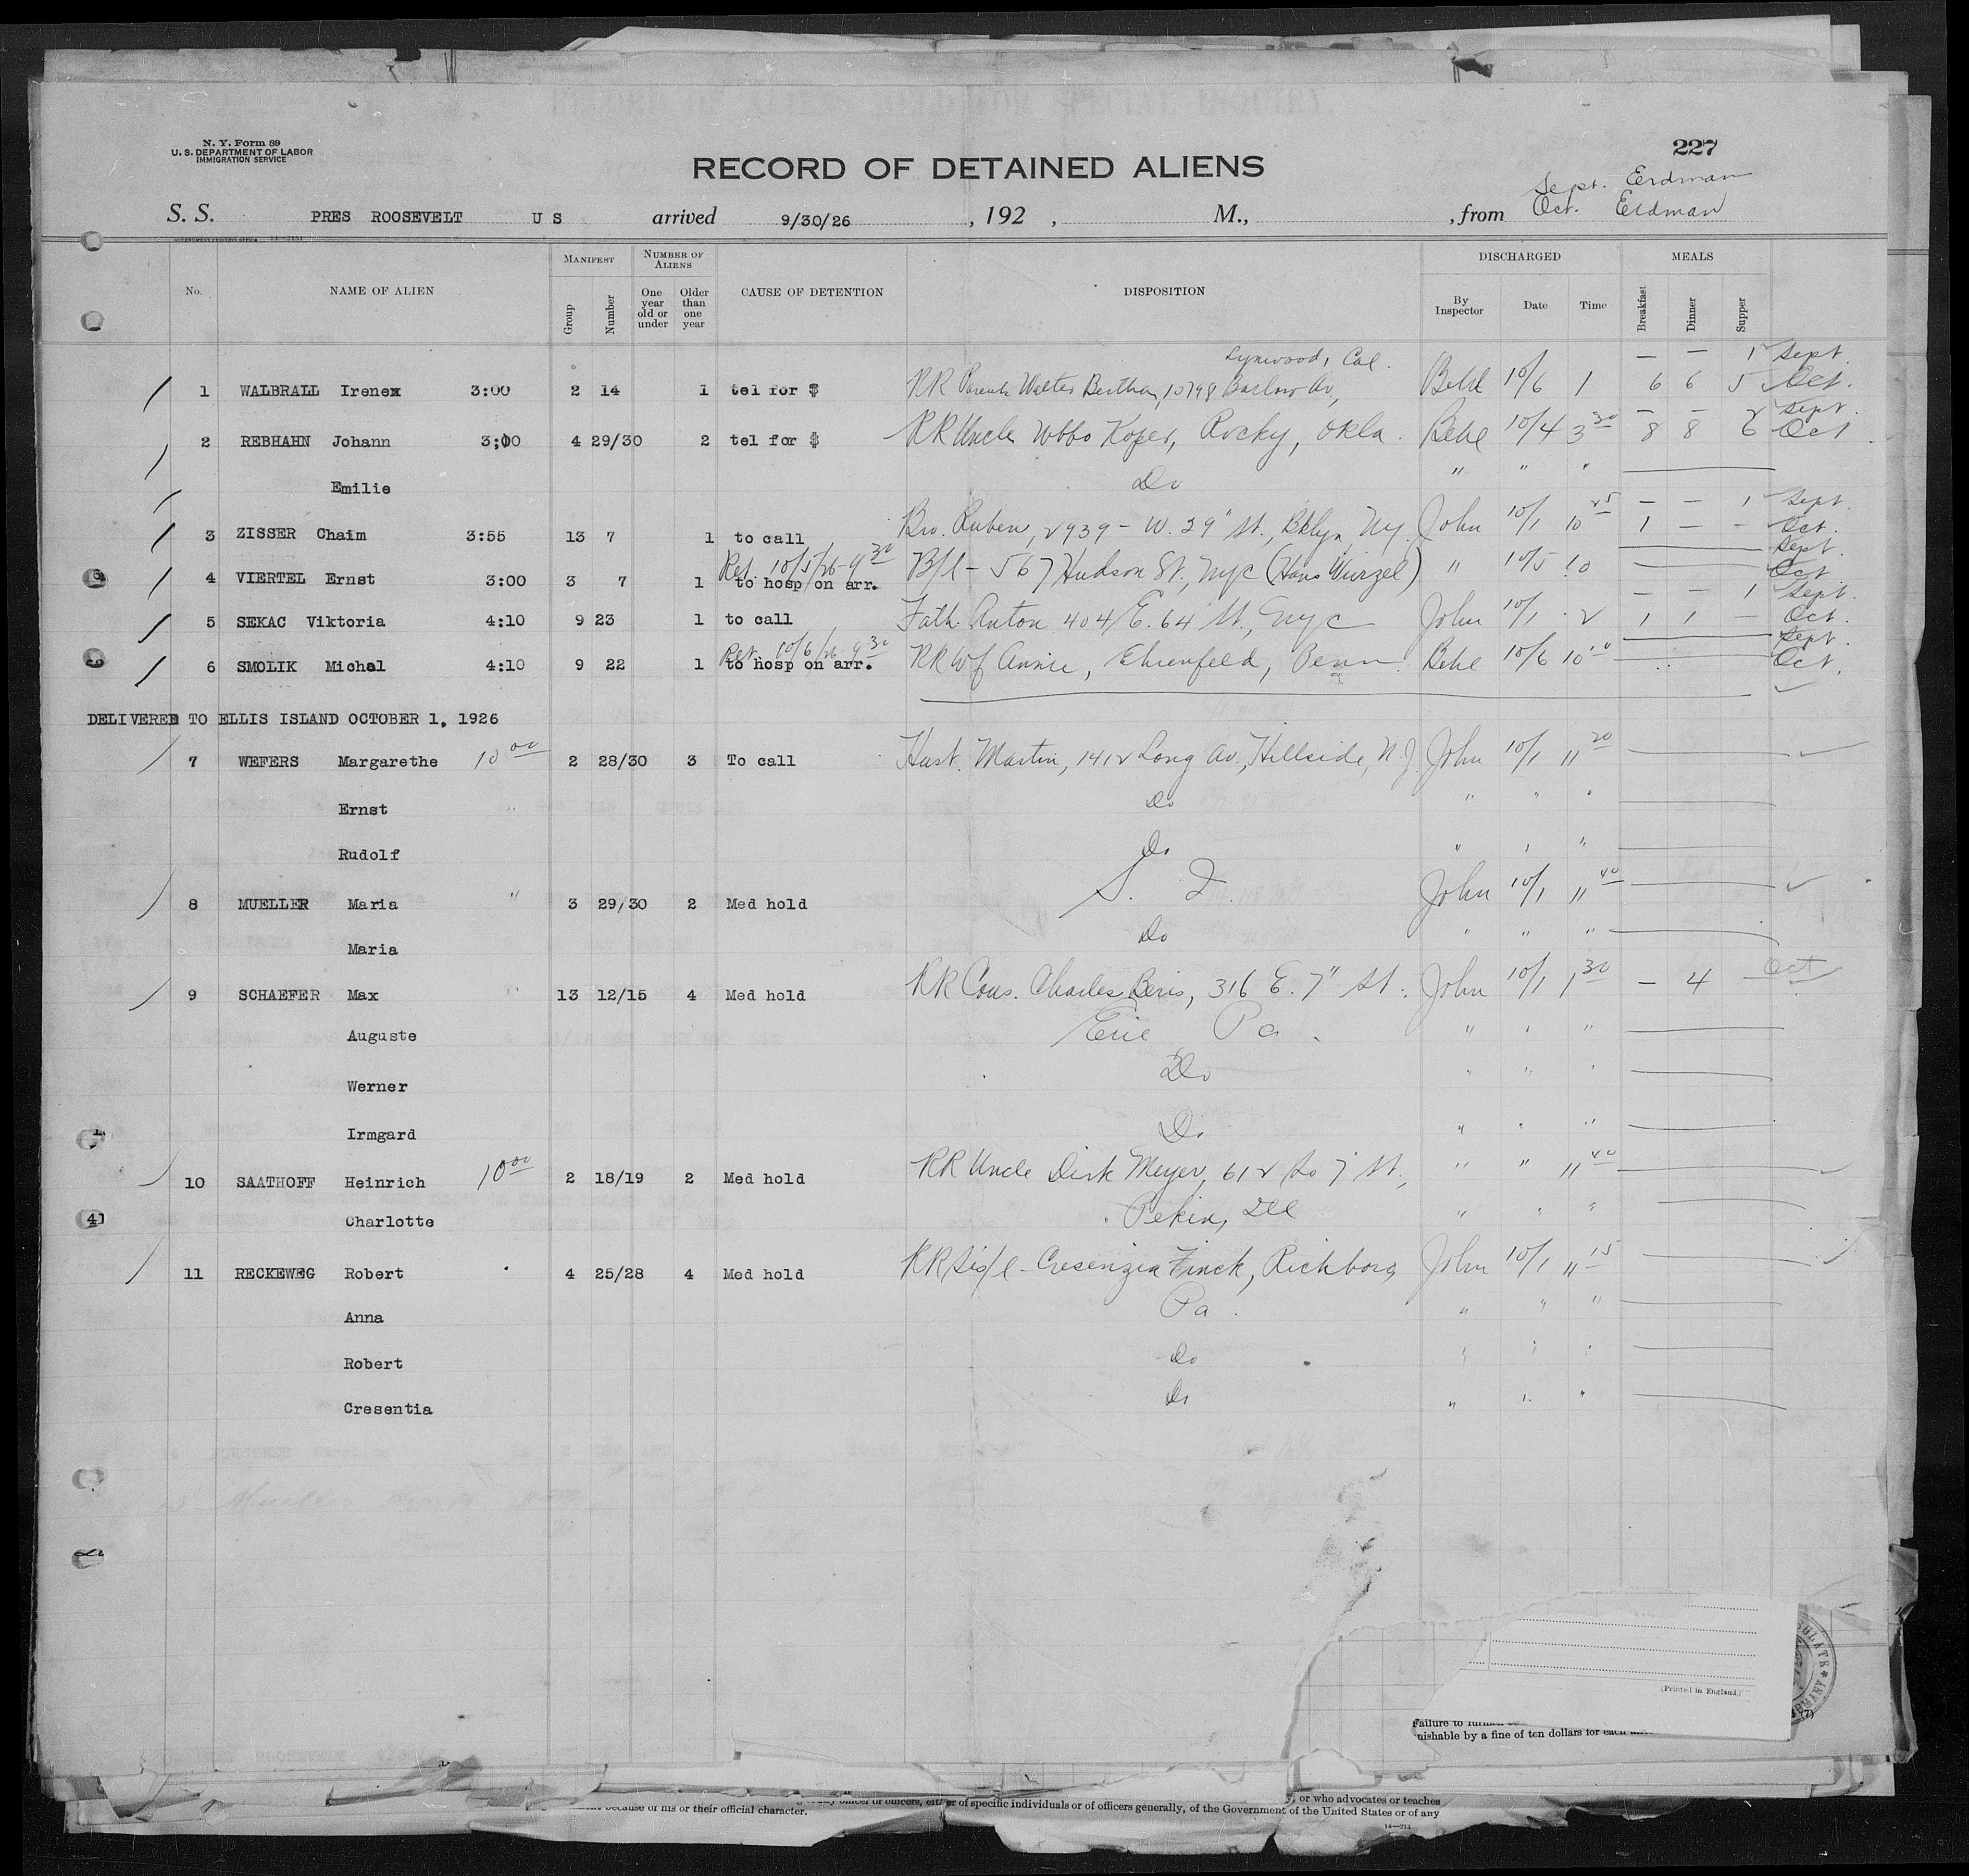 N. Y. Form 89
U. S. DEPARTMENT OF LABOR
IMMIGRATION SERVICE
227
RECORD OF DETAINED ALIENS
Sept. Erdman
S. S. PRES ROOSEVELT U S arrived 9/30/26 , 192 , M., , from Oct. Erdman
MANIFEST NUMBER OF ALIENS DISCHARGED MEALS
No. NAME OF ALIEN Group Number One year old or under Older than one year CAUSE OF DETENTION DISPOSITION By Inspector Date Time Breakfast Dinner Supper
Lynwood, Cal. — — 1 Sept.
1 WALBRALL Irenex 3:00 2 14 1 tel for $ RR Parents Walter Bertha, 10798 Barlow Av, Behl 10/6 1 6 6 5 Oct.
— — 2 Sept.
2 REBHAHN Johann 3:00 4 29/30 2 tel for $ RR Uncle Wbbo Koper, Rocky, Okla. Behl 10/4 3 30 8 8 6 Oct
Emilie Do " " "
— — 1 Sept.
3 ZISSER Chaim 3:55 13 7 1 to call Bro. Ruben, 2939 - W. 29" St., Bklyn, Ny. John 10/1 10 25 1 — — Oct.
Ret. 10/5/26 - 9 30 Sept.
4 VIERTEL Ernst 3:00 3 7 1 to hosp on arr. B/l - 567 Hudson St., Nyc (Hans Wurzel) " 10/5 10 Oct
— — 1 Sept.
5 SEKAC Viktoria 4:10 9 23 1 to call Fath. Anton 404 E. 64 St., Nyc John 10/1 2 1 1 — Oct.
Ret. 10/6/26 - 9 30 Sept.
6 SMOLIK Michal 4:10 9 22 1 to hosp on arr. RR Wf Annie, Ehrenfeld, Penn. Behl 10/6 10 10 Oct.
DELIVERED TO ELLIS ISLAND OCTOBER 1, 1926
7 WEFERS Margarethe 10 00 2 28/30 3 To call Husb. Martin, 1412 Long Av., Hillside, N.J. John 10/1 11 20
Ernst " Do " " "
Rudolf Do " " "
8 MUELLER Maria " 3 29/30 2 Med hold S. I. John 10/1 11 40
Maria Do " " "
9 SCHAEFER Max " 13 12/15 4 Med hold RR Cous. Charles Beris, 316 E. 7" St. John 10/1 1 30 — 4 — Oct
Auguste Erie Pa. " " "
Werner Do " " "
Irmgard Do " " "
10 SAATHOFF Heinrich 10 00 2 18/19 2 Med hold RR Uncle Dirk Meyer, 612 So 7 St., " " 11 40
Charlotte Pekin, Ill " " "
11 RECKEWEG Robert 4 25/28 4 Med hold RR Sis/l - Cresenzia Finck, Richborg John 10/1 11 15
Anna Pa. " " "
Robert Do " " "
Cresentia Do " " "
(Printed in England.)
Failure to
nishable by a fine of ten dollars for each
because of his or their official character.
any officer or officers, either of specific individuals or of officers generally, of the Government of the United States or of any
, or who advocates or teaches
14—213